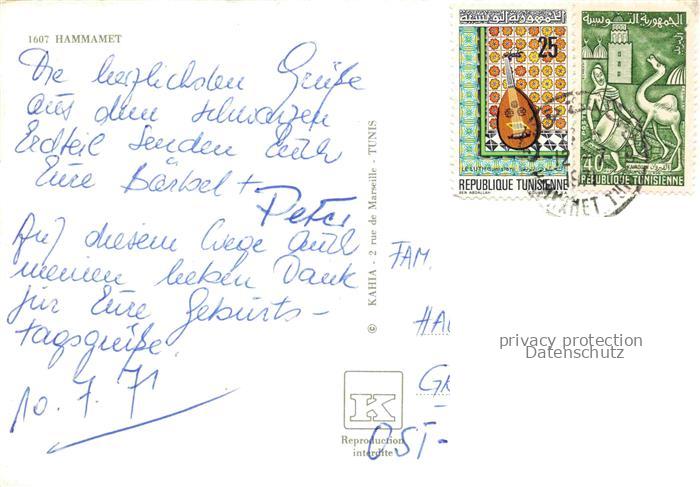 1607 HAMMAMET
Die herzlichsten Grüße
aus dem schwarzen
Erdteil senden Euch
Eure Bärbel +
Peter
Auf diesem Wege auch
meinen lieben Dank
für Eure Geburts-
tagsgrüße.
10.7.71
© KAHIA - 2 rue de Marseille - TUNIS
K
Reproduction
interdite
الجمهورية التونسية
25
REPUBLIQUE TUNISIENNE
BEN ABDALLAH
الجمهورية التونسية
40
KAIROUAN القيروان
REPUBLIQUE TUNISIENNE
FAM.
HA
GR
OST-
privacy protection
Datenschutz